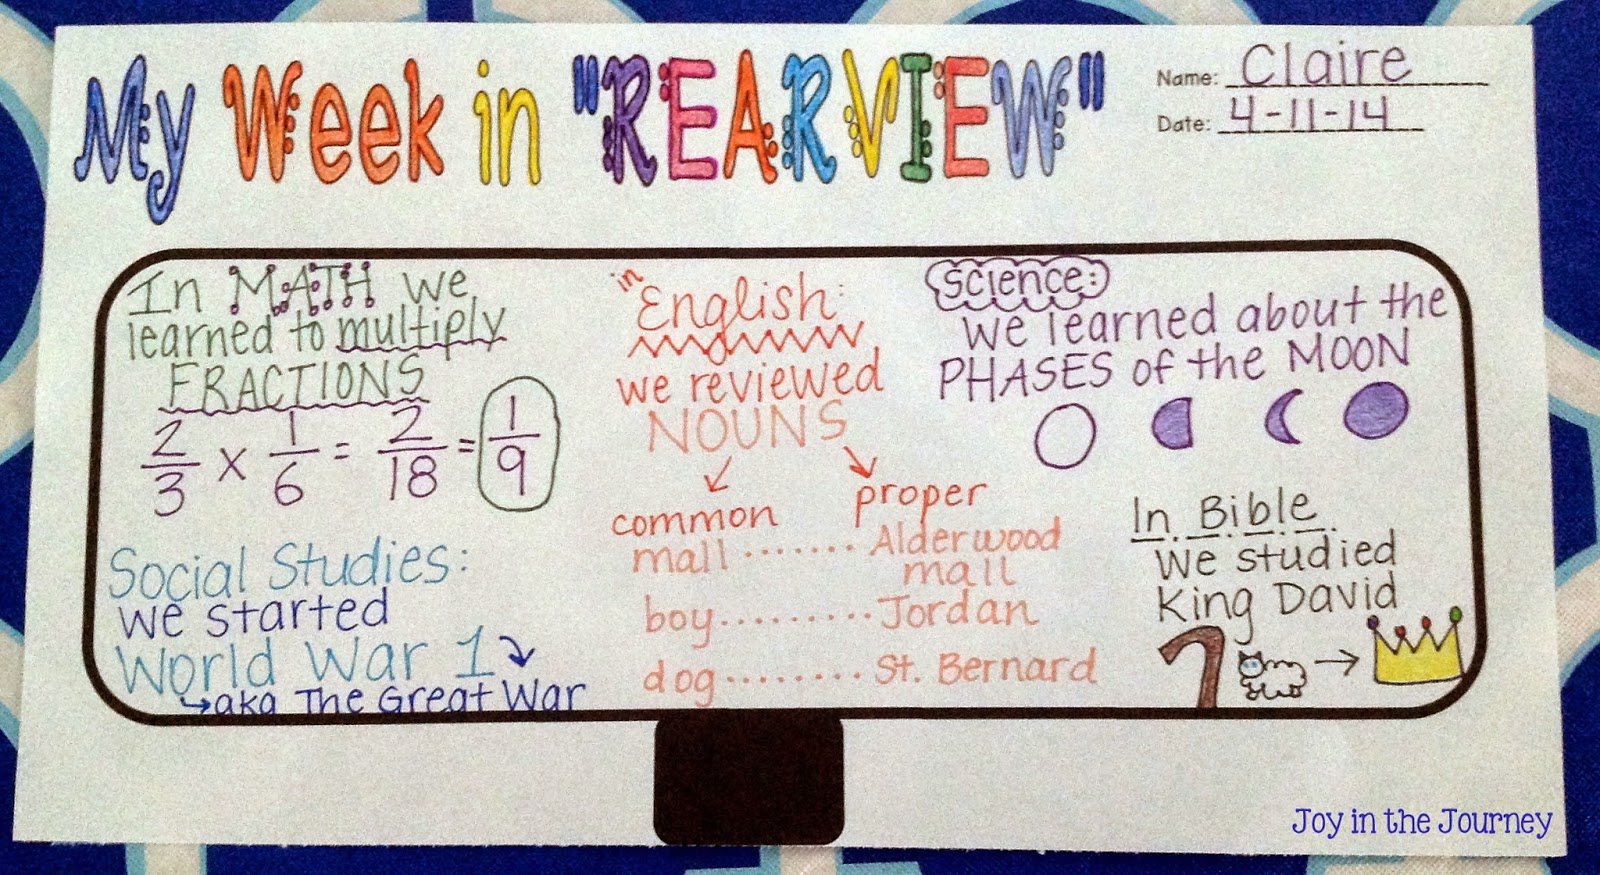 My Week in "REARVIEW"
Name: Claire
Date: 4-11-14
In MATH we
learned to multiply
FRACTIONS
2/3 x 1/6 = 2/18 = 1/9
Social Studies:
we started
World War 1
aka The Great War
in
English:
we reviewed
NOUNS
common proper
mall ....... Alderwood
mall
boy......... Jordan
dog........ St. Bernard
Science:
we learned about the
PHASES of the MOON
In Bible
we studied
King David
Joy in the Journey